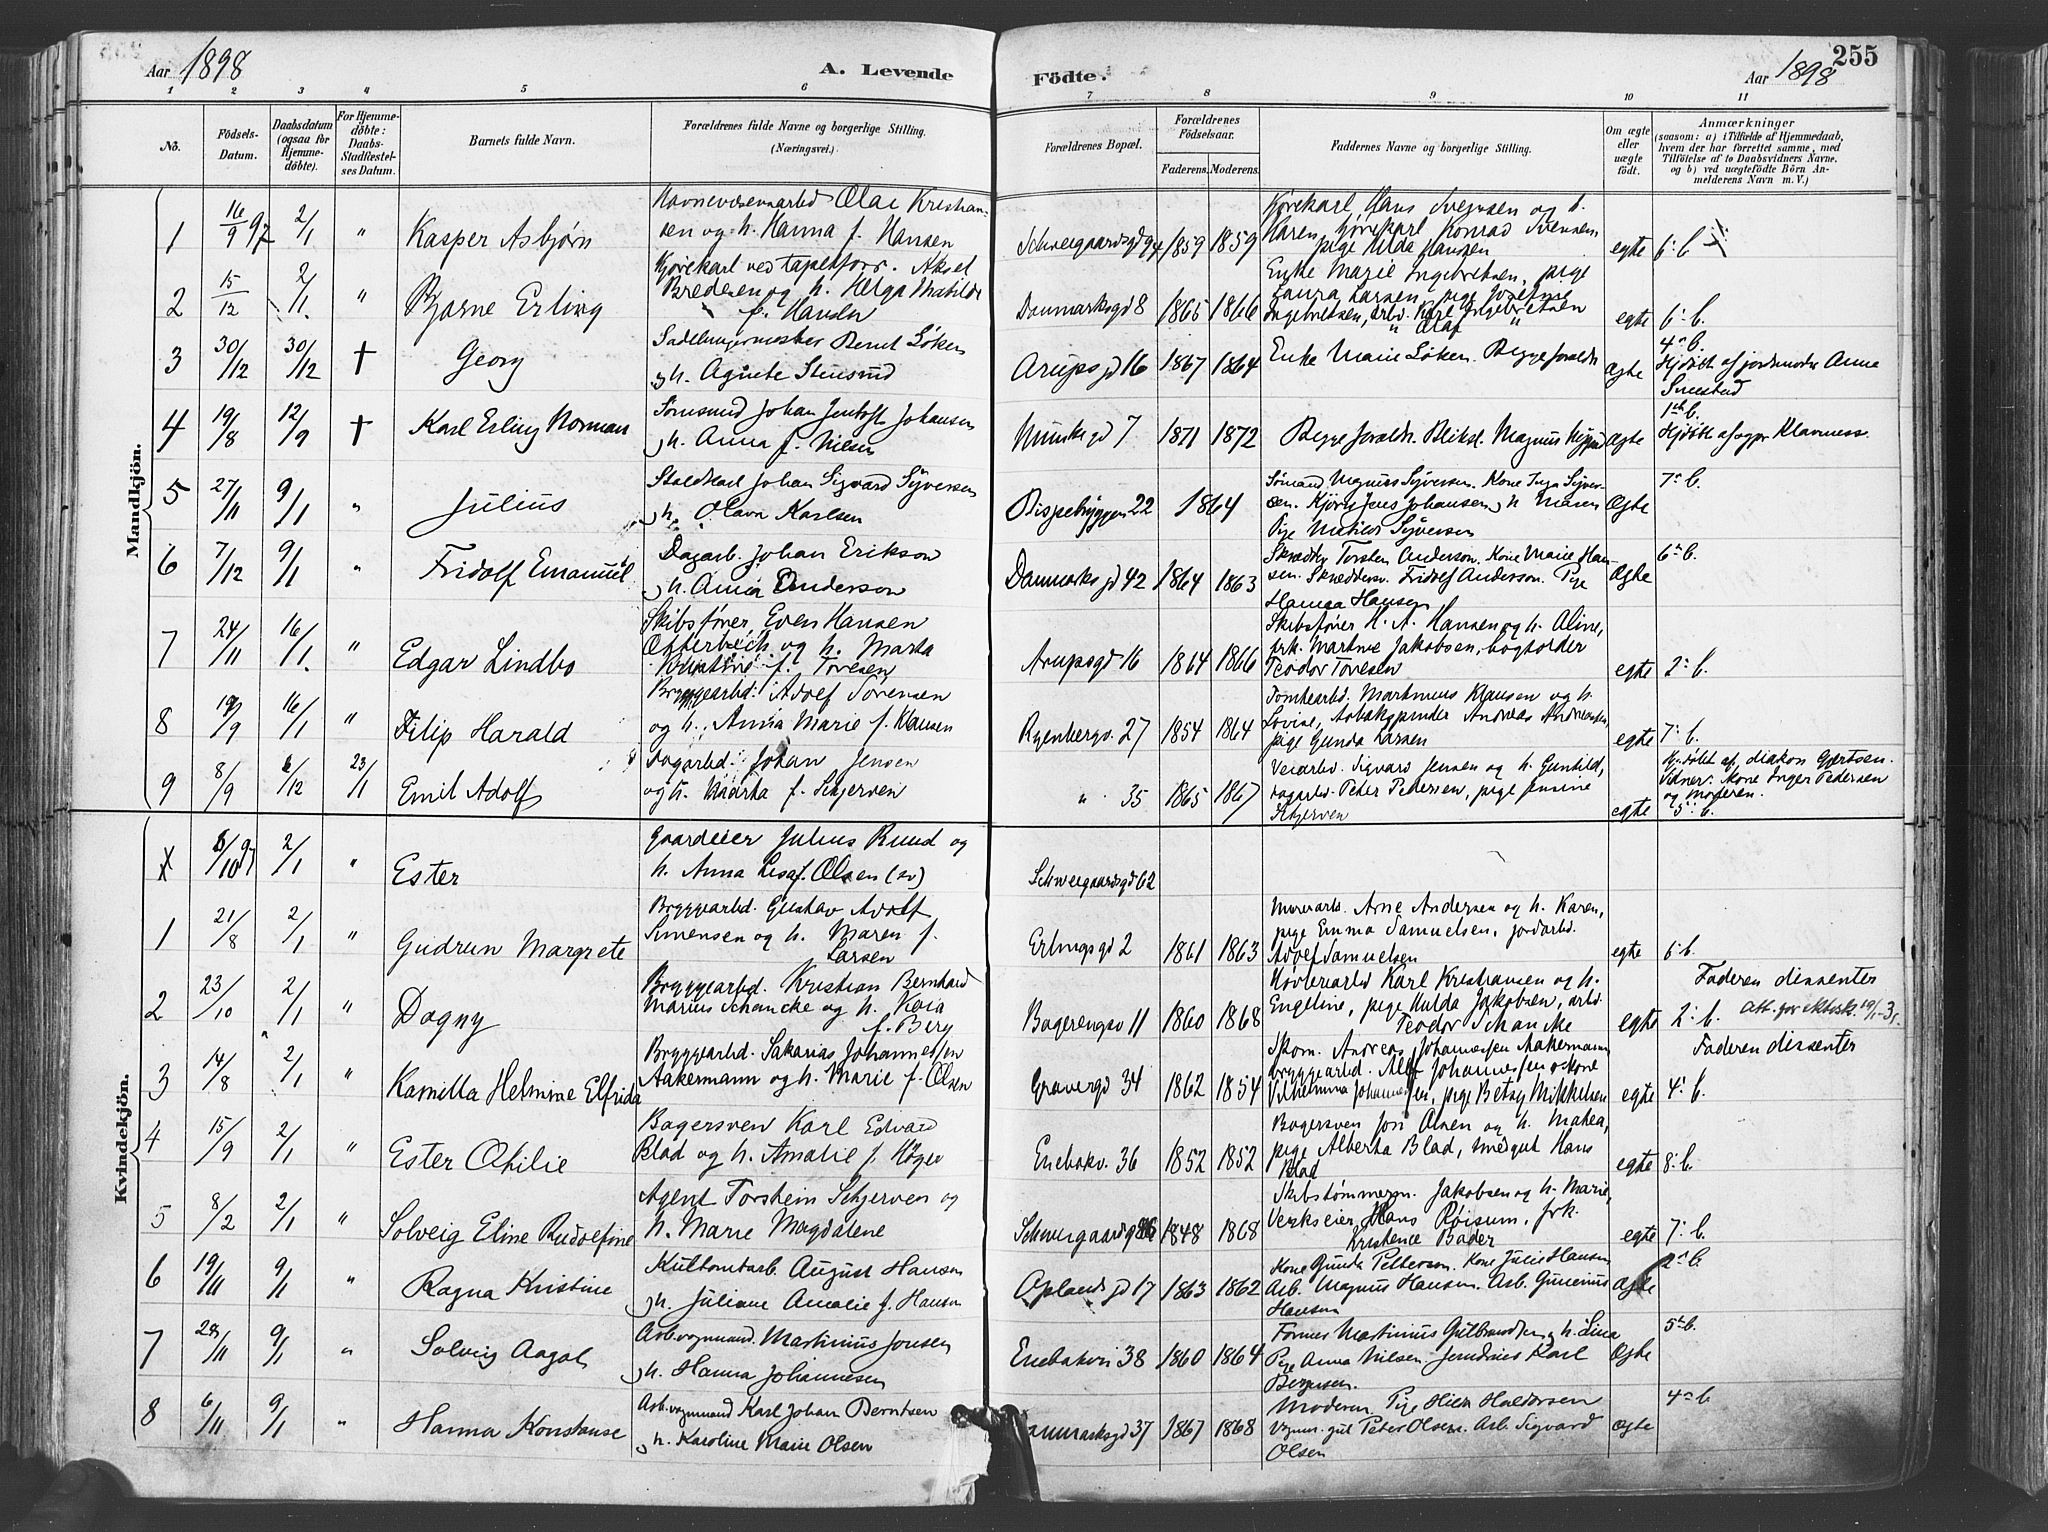 Aar 1898
A. Levende
Födte.
Aar 1898
255
1 2 3 4 5 6 7 8 9 10 11
No.
Fødsels-Datum.
Daabsdatum (ogsaa for Hjemme-døbte).
For Hjemme-døbte: Daabs-Stadfæstel-ses Datum.
Barnets fulde Navn.
Forældrenes fulde Navne og borgerlige Stilling. (Næringsvei.)
Forældrenes Bopæl.
Forældrenes Fødselsaar.
Faderens. Moderens.
Faddernes Navne og borgerlige Stilling.
Om ægte eller uægte født.
Anmærkninger
(saasom: a) i Tilfælde af Hjemmedaab, hvem der har forrettet samme, med Tilföielse af to Daabsvidners Navne. og b) ved uægtefödte Börn An-melderens Navn m. V.)
Mandkjön.
1 16/9 97 2/1 " Kasper Asbjørn
Havnevæsenarbd Olai Kristian-
sen og h. Hanna f. Hansen
Schweigaardsgd 94 1859 1859
Kjørekarl Hans Svensen og h.
Karen, kjørekarl Konrad Svensen
pige Hilda Hansen
egte 6: b.
2 15/12 2/1 " Bjarne Erling
Kjørekarl ved tapetforr. Aksel
Bredesen og h. Helga Matilde
f. Hansen
Danmarksgd 8 1865 1866
Enke Marie Ingebretsen, pige
Laura Larsen, pige Josefine
Ingebretsen, arb. Karl Ingebretsen
" Olaf "
egte 6: b.
3 30/12 30/12 † Georg
Sadelmagermester Bernt Løken
og h. Agnete Stensrud
Arupsgd 16 1867 1864
Enke Marie Løken. Begge foraldr
Ægte
4: b.
Hjdøbt af jordmoder Anna
4 19/8 12/9 † Karl Erling Norman
Sømand Johan Jentoft Johansen
og h. Anna f. Nilsen
Munkegd 7 1871 1872
Begge foraldr. Bliksl. Magnus
Ægte
1ste b.
Hjdøbt af sogpr Klavness.
5 27/11 9/1 " Julius
Staldkarl Johan Sigvard Syversen
og h. Olava Karlsen
Bispebryggen 22 1864
Sømand Magnus Syversen. Kone Inga Syver-
sen. Kjørek Jens Johansen og h Maren
Pige Matilde Syversen
Ægte
7: b.
6 7/12 9/1 " Fridolf Emanuel
Dagarb. Johan Erikson
og h. Anna Anderson
Danmarksgd 42 1864 1863
Skrædder Torsten Anderson. Kone Marie Han-
sen. Skræddersv. Fridolf Anderson. Pige
Hanna Hansen
Ægte
6: b.
7 24/11 16/1 " Edgar Lindbo
Skibsfører Even Hansen
og h. Marta
f. Toresen
Arupsgd 16 1864 1866
Skibsfører H. A. Hansen og h. Aline,
frk. Martine Jakobsen, bogholder
Teodor Toresen
egte 2: b.
8 19/9 16/1 " Filip Harald
Bryggearbd. Adolf Sørensen
og h. Anna Marie f. Klausen
Ryenbergv. 27 1854 1864
Tomtearbd. Martinius Klausen og h.
Lovise, Andreas Andreassen,
pige Gunda Larsen
egte 7: b.
9 8/9 6/12 23/1 Emil Adolf
Dagarbd. Johan Jensen
og h. Maarta f. Schjerven
" 35 1865 1867
Veiarbd. Sigvard Jensen og h. Gunhild,
dagarbd. Peter Pedersen, pige Jensine
Schjerven
egte
Hj.døbt af diakon Gjertsen.
Vidner: Kone Inger Pedersen
og Moderen.
5: b.
Kvindekjön.
X 8/10 97 2/1 " Ester
Gaardeier Julius Ruud og
h. Anna Lisa f. Olsen (sv)
Schweigaardsgd 62
1 21/8 2/1 " Gudrun Margrete
Bryggarbd. Gustav Adolf
Simensen og h. Maren f.
Larsen
Erlingsgd 2 1861 1863
Murerarb. Arne Andersen og h. Karen,
pige Emma Samuelsen, jordarbd.
Adolf Samuelsen
egte 6: b.
2 23/10 2/1 " Dagny
Bryggearbd. Kristian Bernhard
Marius Schancke og h. Kaia
f. Berg
Bogerengsv 11 1860 1868
Høvleriarbd Karl Kristiansen og h.
Engeline, pige Hulda Jakobsen, arbd.
Teodor Schancke
egte 2: b.
Faderen dissenter
3 14/8 2/1 " Kamilla Helmine Elfrida
Bryggarbd. Sakarias Johannessen
Aakermann og h. Marie f. Olsen
Gravergd 34 1862 1854
Skom. Andreas Johannessen Aakermann
bryggearbd. Alf Johannessen o kone
Vilhelmina Johannessen, pige Betsy Mikkelsen
egte 4: b.
Faderen dissenter
4 15/9 2/1 " Ester Otilie
Bagersven Karl Edvard
Blad og h. Amalie f. Høyer
Enebakv. 36 1852 1852
Bagersven Jon Olsen og h. Mathea,
pige Alberta Blad, smedgut Hans
Blad
egte 8: b.
5 8/2 2/1 " Solveig Eline Rudolfine
Agent Torstein Schjerven og
h. Marie Magdalene
Schweigaardsgd 86 1848 1868
Skibstømmerm. Jakobsen og h. Marie,
Verkseier Hans Røisum, frk.
Kristence Bader
egte 7: b.
6 19/11 9/1 " Ragna Kristine
Kultomtarb. August Hansen
og h. Juliane Amalie f. Hansen
Oplandsgd 17 1863 1862
Kone Gunda Petterson. Kone Julie Hansen
Arb. Magnus Hansen. Arb. Gunerius
Hansen
Ægte
2: b.
7 28/11 9/1 " Solveig Aagot
Arb.vognmand. Martinius Jonsen
og h. Hanna Johannesen
Enebakvei 38 1860 1864
Former Martinius Gulbrandsen og h. Lina
Pige Anna Nilsen. Karl
Berntsen.
Ægte
5: b.
8 6/11 9/1 " Hanna Konstanse
Arb. vognmand Karl Johan Berntsen
og h. Karoline Marie Olsen
Danmarksgd 37 1867 1868
Moderen. Pige Hilda Haldorsen
Vogm. gut Peter Olsen. Arb. Sigvard
Olsen
ægte
4: b.